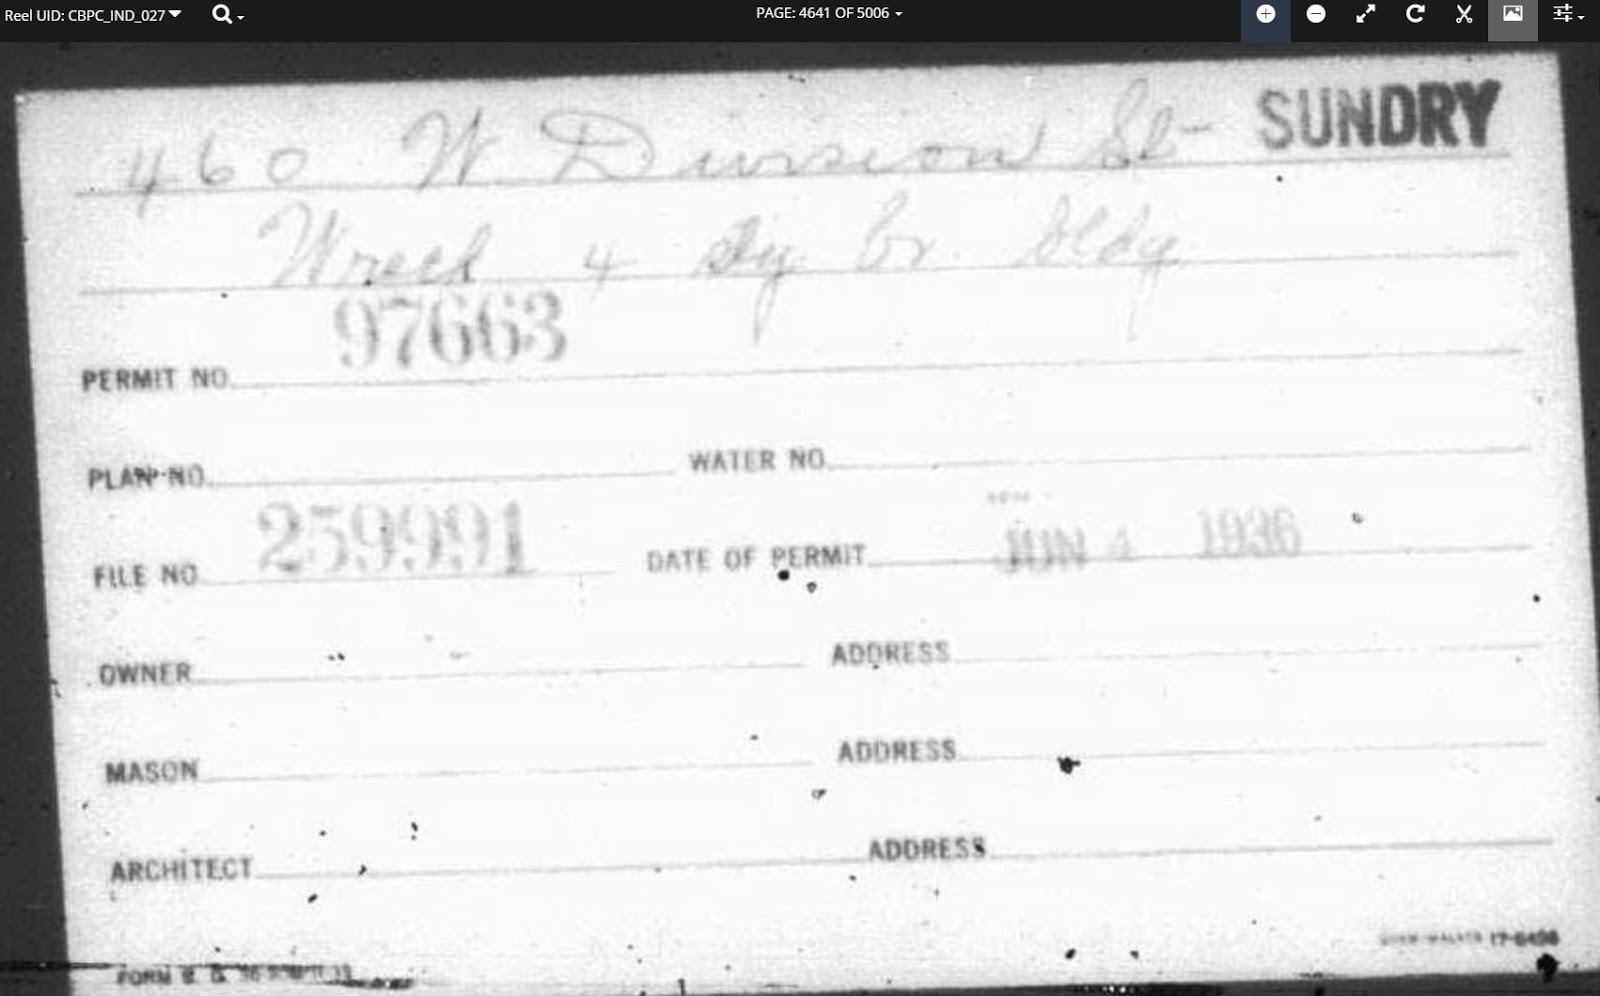 Reel UID: CBPC_IND_027
PAGE: 4641 OF 5006
460 W Division St- SUNDRY
Wreck 4 Sy. br. bldg.
97663
PERMIT NO.
PLAN NO. WATER NO.
259991 JUN 4 1936
FILE NO. DATE OF PERMIT
OWNER ADDRESS
MASON ADDRESS
ARCHITECT ADDRESS
17-6498
FORM